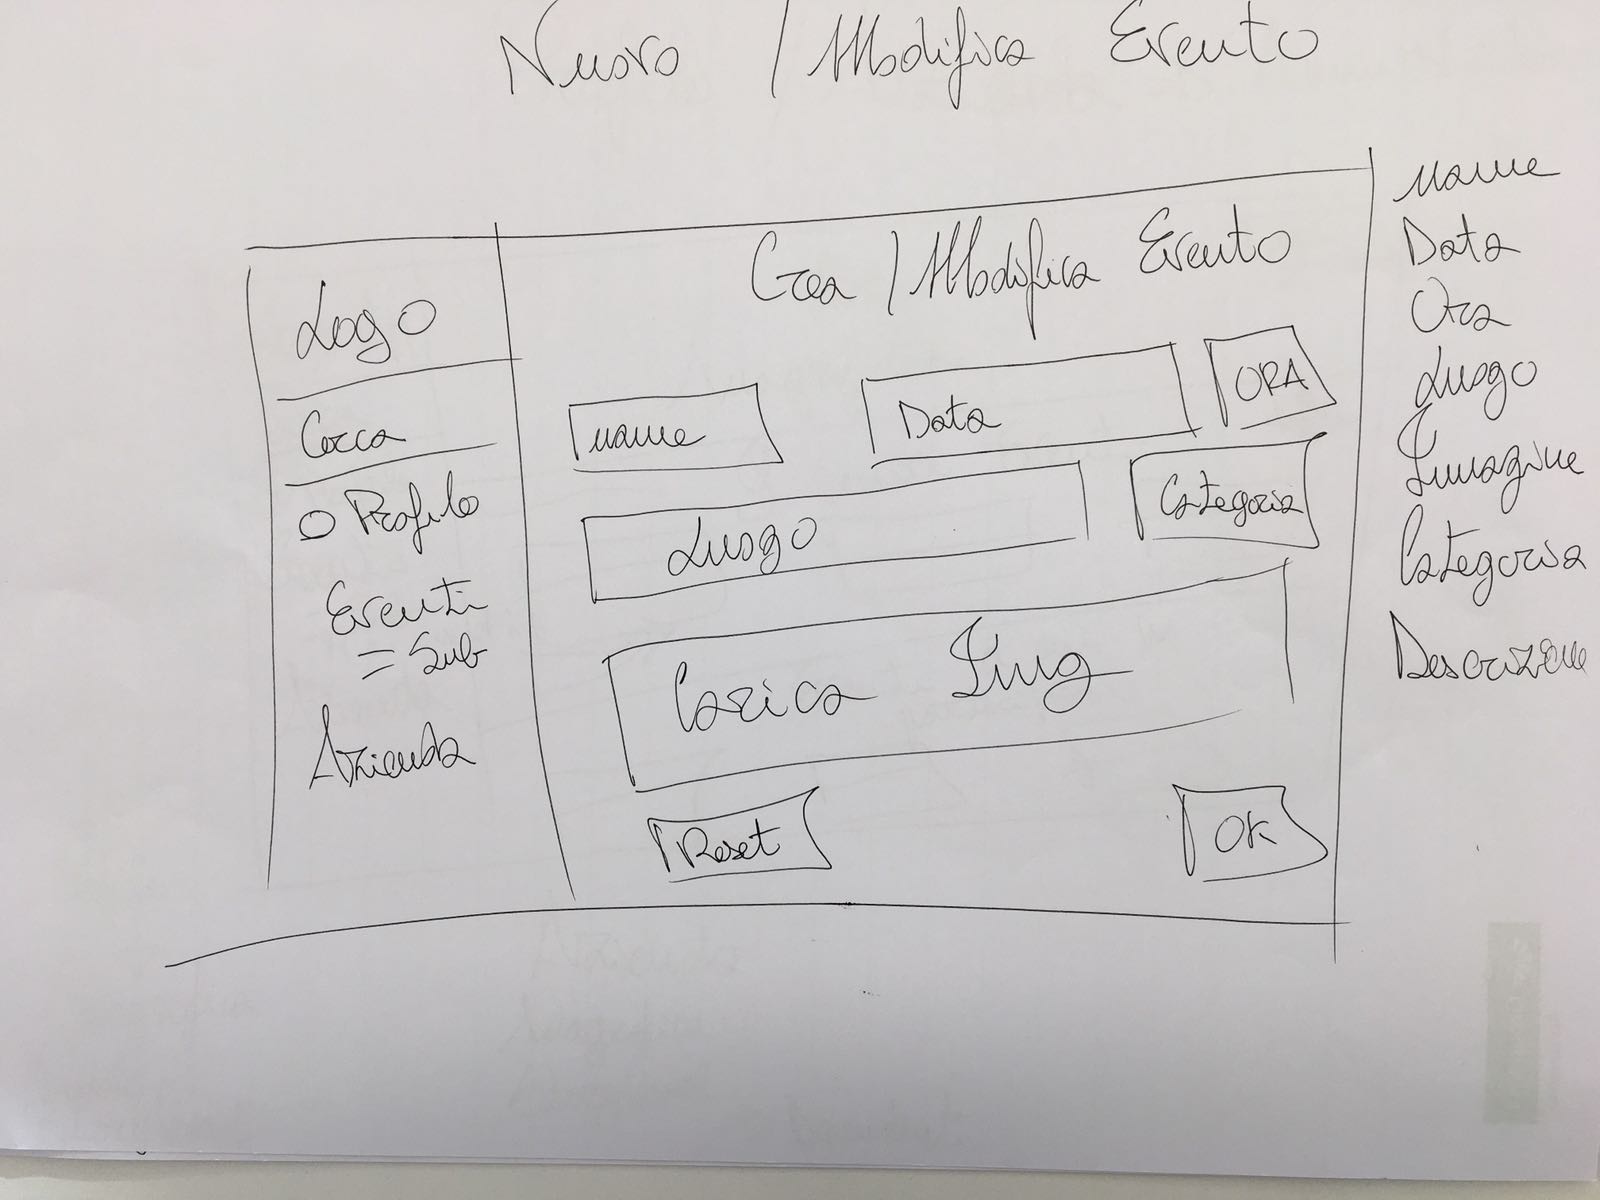 Nuovo / Modifica Evento
Logo
Cerca
Profilo
Eventi
= Sub
Azienda
Crea / Modifica Evento
name
Data
ORA
Luogo
Categoria
Carica Img
Reset
OK
name
Data
Ora
Luogo
Immagine
Categoria
Descrizione